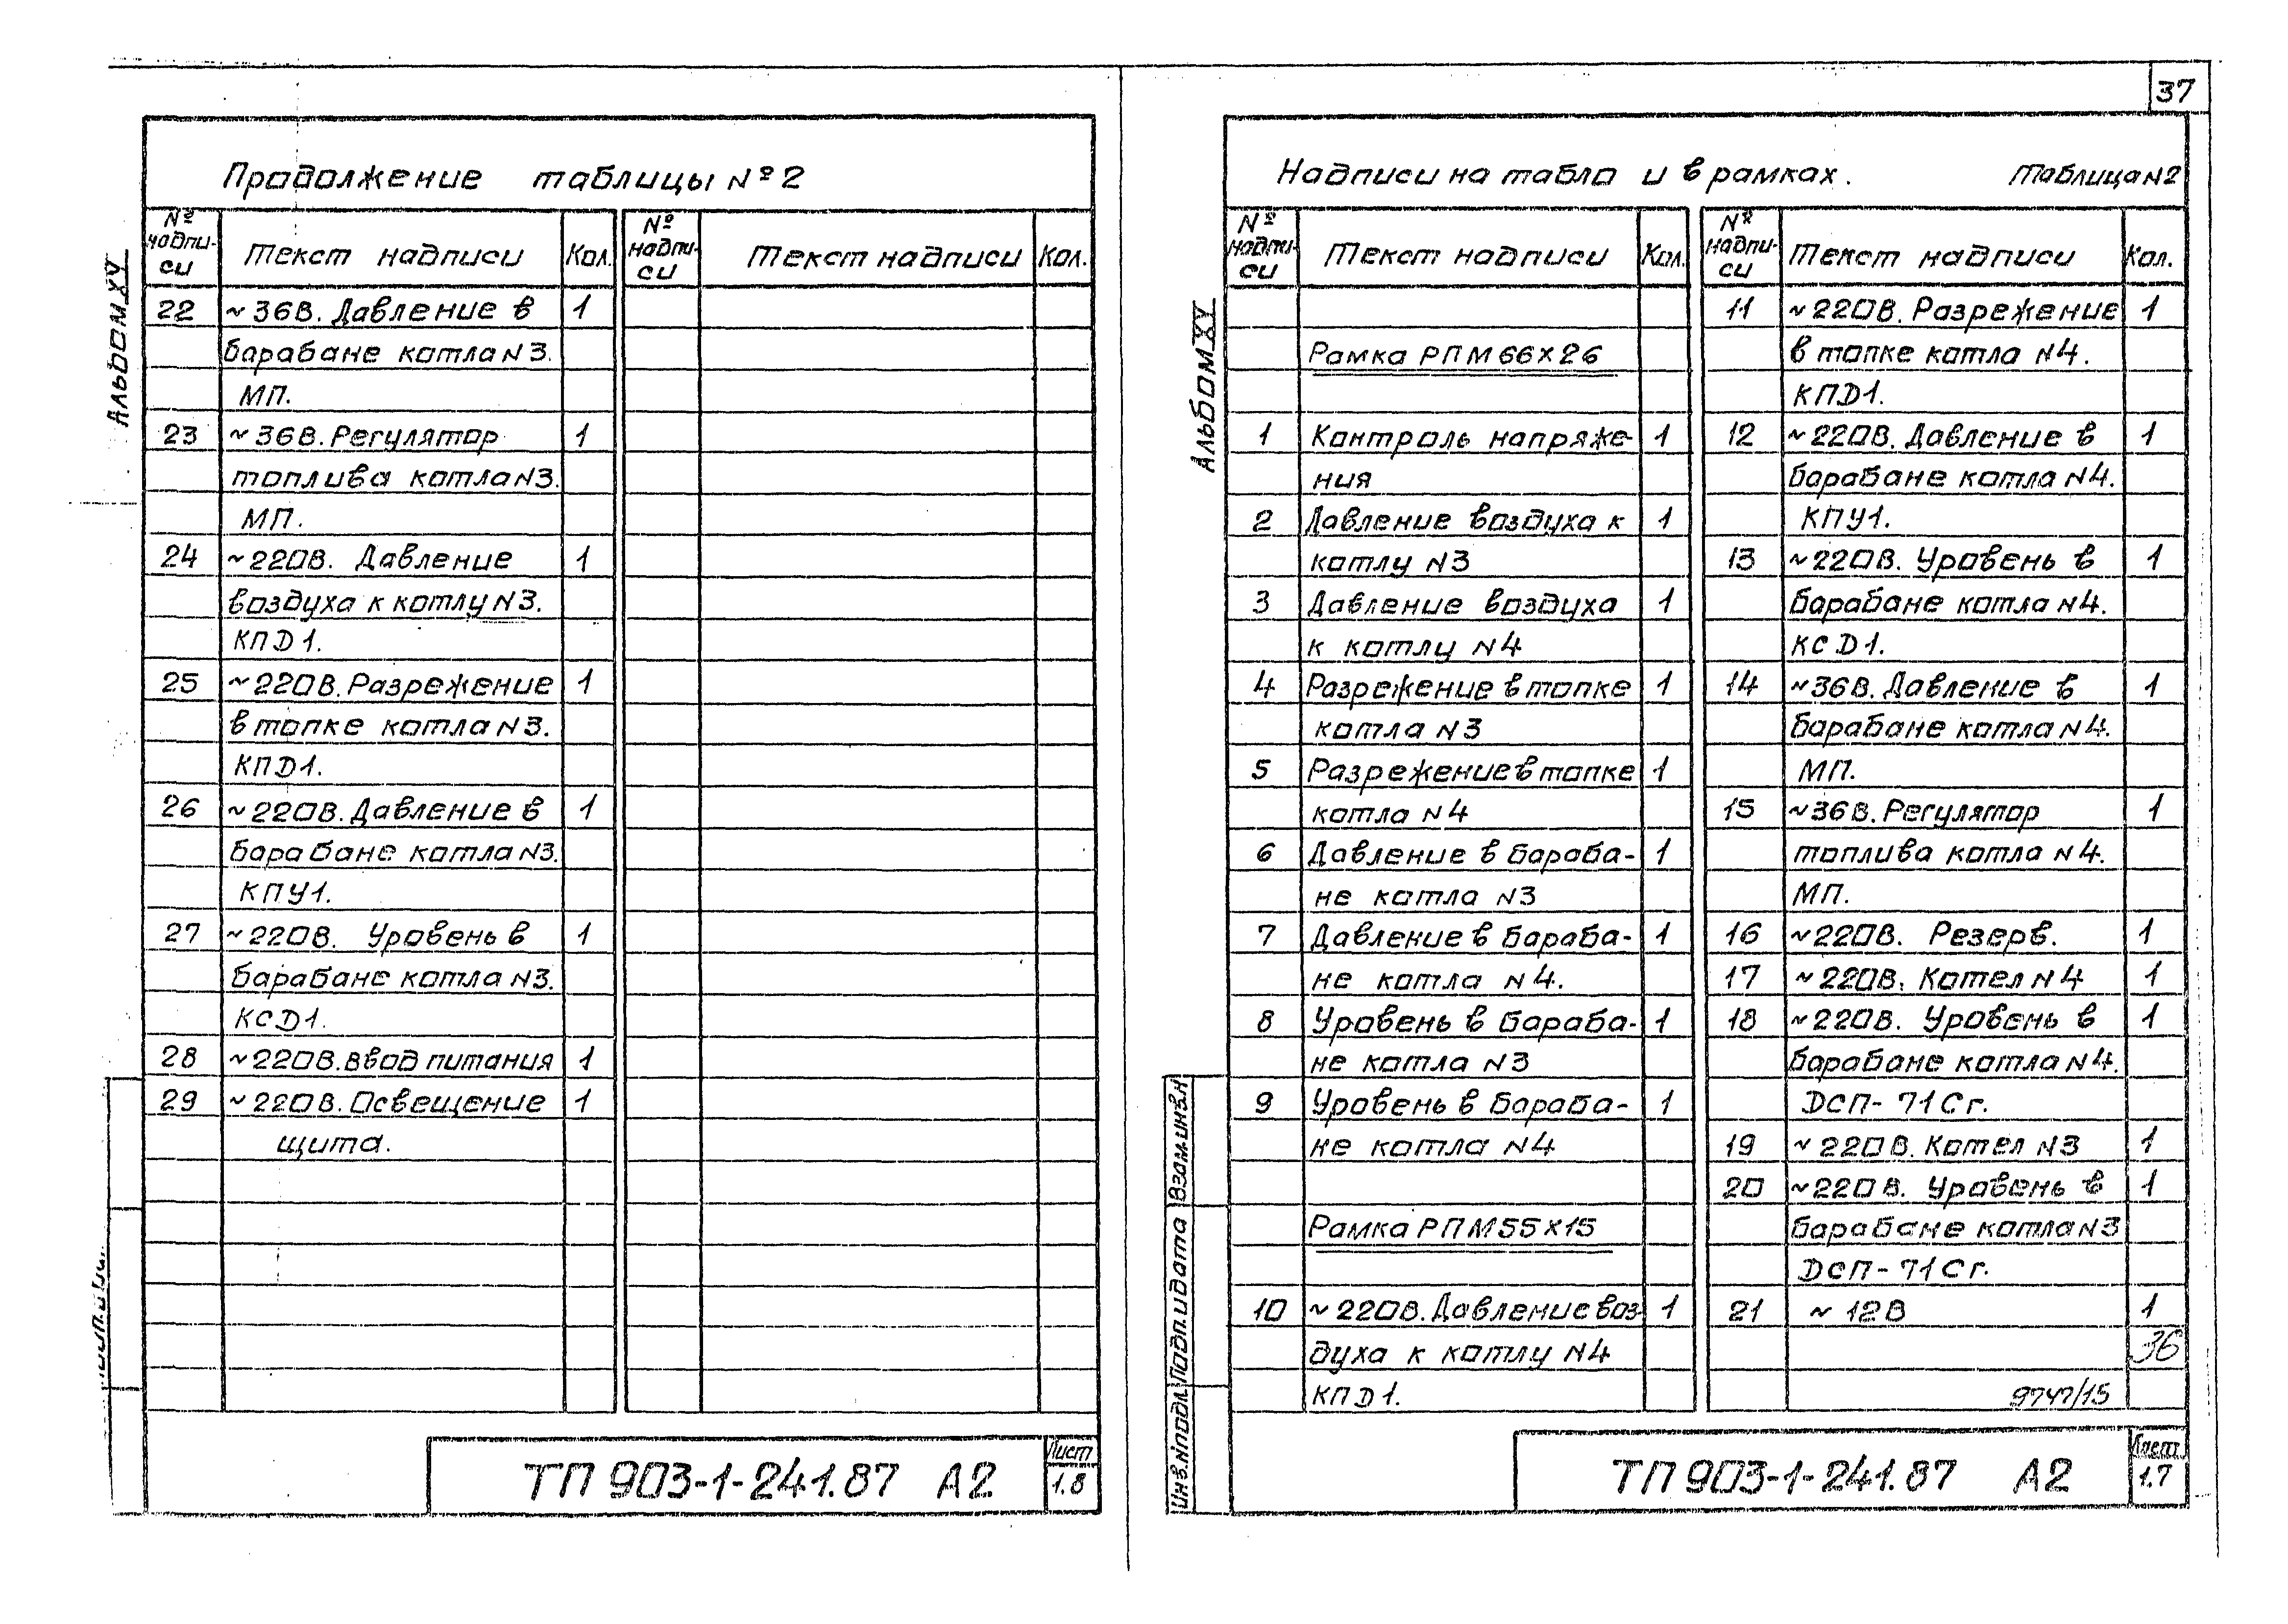 37
Альбом XV
Продолжение таблицы №2
№ надпи-си Текст надписи Кол. № надпи-си Текст надписи Кол.
22 ~36В. Давление в 1
барабане котла N3.
МП.
23 ~36В. Регулятор 1
топлива котла N3.
МП.
24 ~220В. Давление 1
воздуха к котлу N3.
КПД1.
25 ~220В. Разрежение 1
в топке котла N3.
КПД1.
26 ~220В. Давление в 1
барабане котла N3.
КПУ1.
27 ~220В. Уровень в 1
барабане котла N3.
КСД1.
28 ~220В. Ввод питания 1
29 ~220В. Освещение 1
щита.
ТП 903-1-241.87 А2
Лист
1.8
Альбом XV
Надписи на табло и в рамках. Таблица N2
№ надпи-си Текст надписи Кол.
Рамка РПМ 66×26
1 Контроль напряже- 1
ния
2 Давление воздуха к 1
котлу N3
3 Давление воздуха 1
к котлу N4
4 Разрежение в топке 1
котла N3
5 Разрежение в топке 1
котла N4
6 Давление в бараба- 1
не котла N3
7 Давление в бараба- 1
не котла N4.
8 Уровень в бараба- 1
не котла N3
9 Уровень в бараба- 1
не котла N4
Рамка РПМ 55×15
10 ~220В. Давление воз- 1
духа к котлу N4
КПД1.
№ надпи-си Текст надписи Кол.
11 ~220В. Разрежение 1
в топке котла N4.
КПД1.
12 ~220В. Давление в 1
барабане котла N4.
КПУ1.
13 ~220В. Уровень в 1
барабане котла N4.
КСД1.
14 ~36В. Давление в 1
барабане котла N4.
МП.
15 ~36В. Регулятор 1
топлива котла N4.
МП.
16 ~220В. Резерв. 1
17 ~220В. Котел N4 1
18 ~220В. Уровень в 1
барабане котла N4.
ДСП-71Сг.
19 ~220В. Котел N3 1
20 ~220В. Уровень в 1
барабане котла N3
ДСП-71Сг.
21 ~12В 1
36
9747/15
Инв.N подл. Подп. и дата Взам.инв.N
ТП 903-1-241.87 А2
Лист
1.7